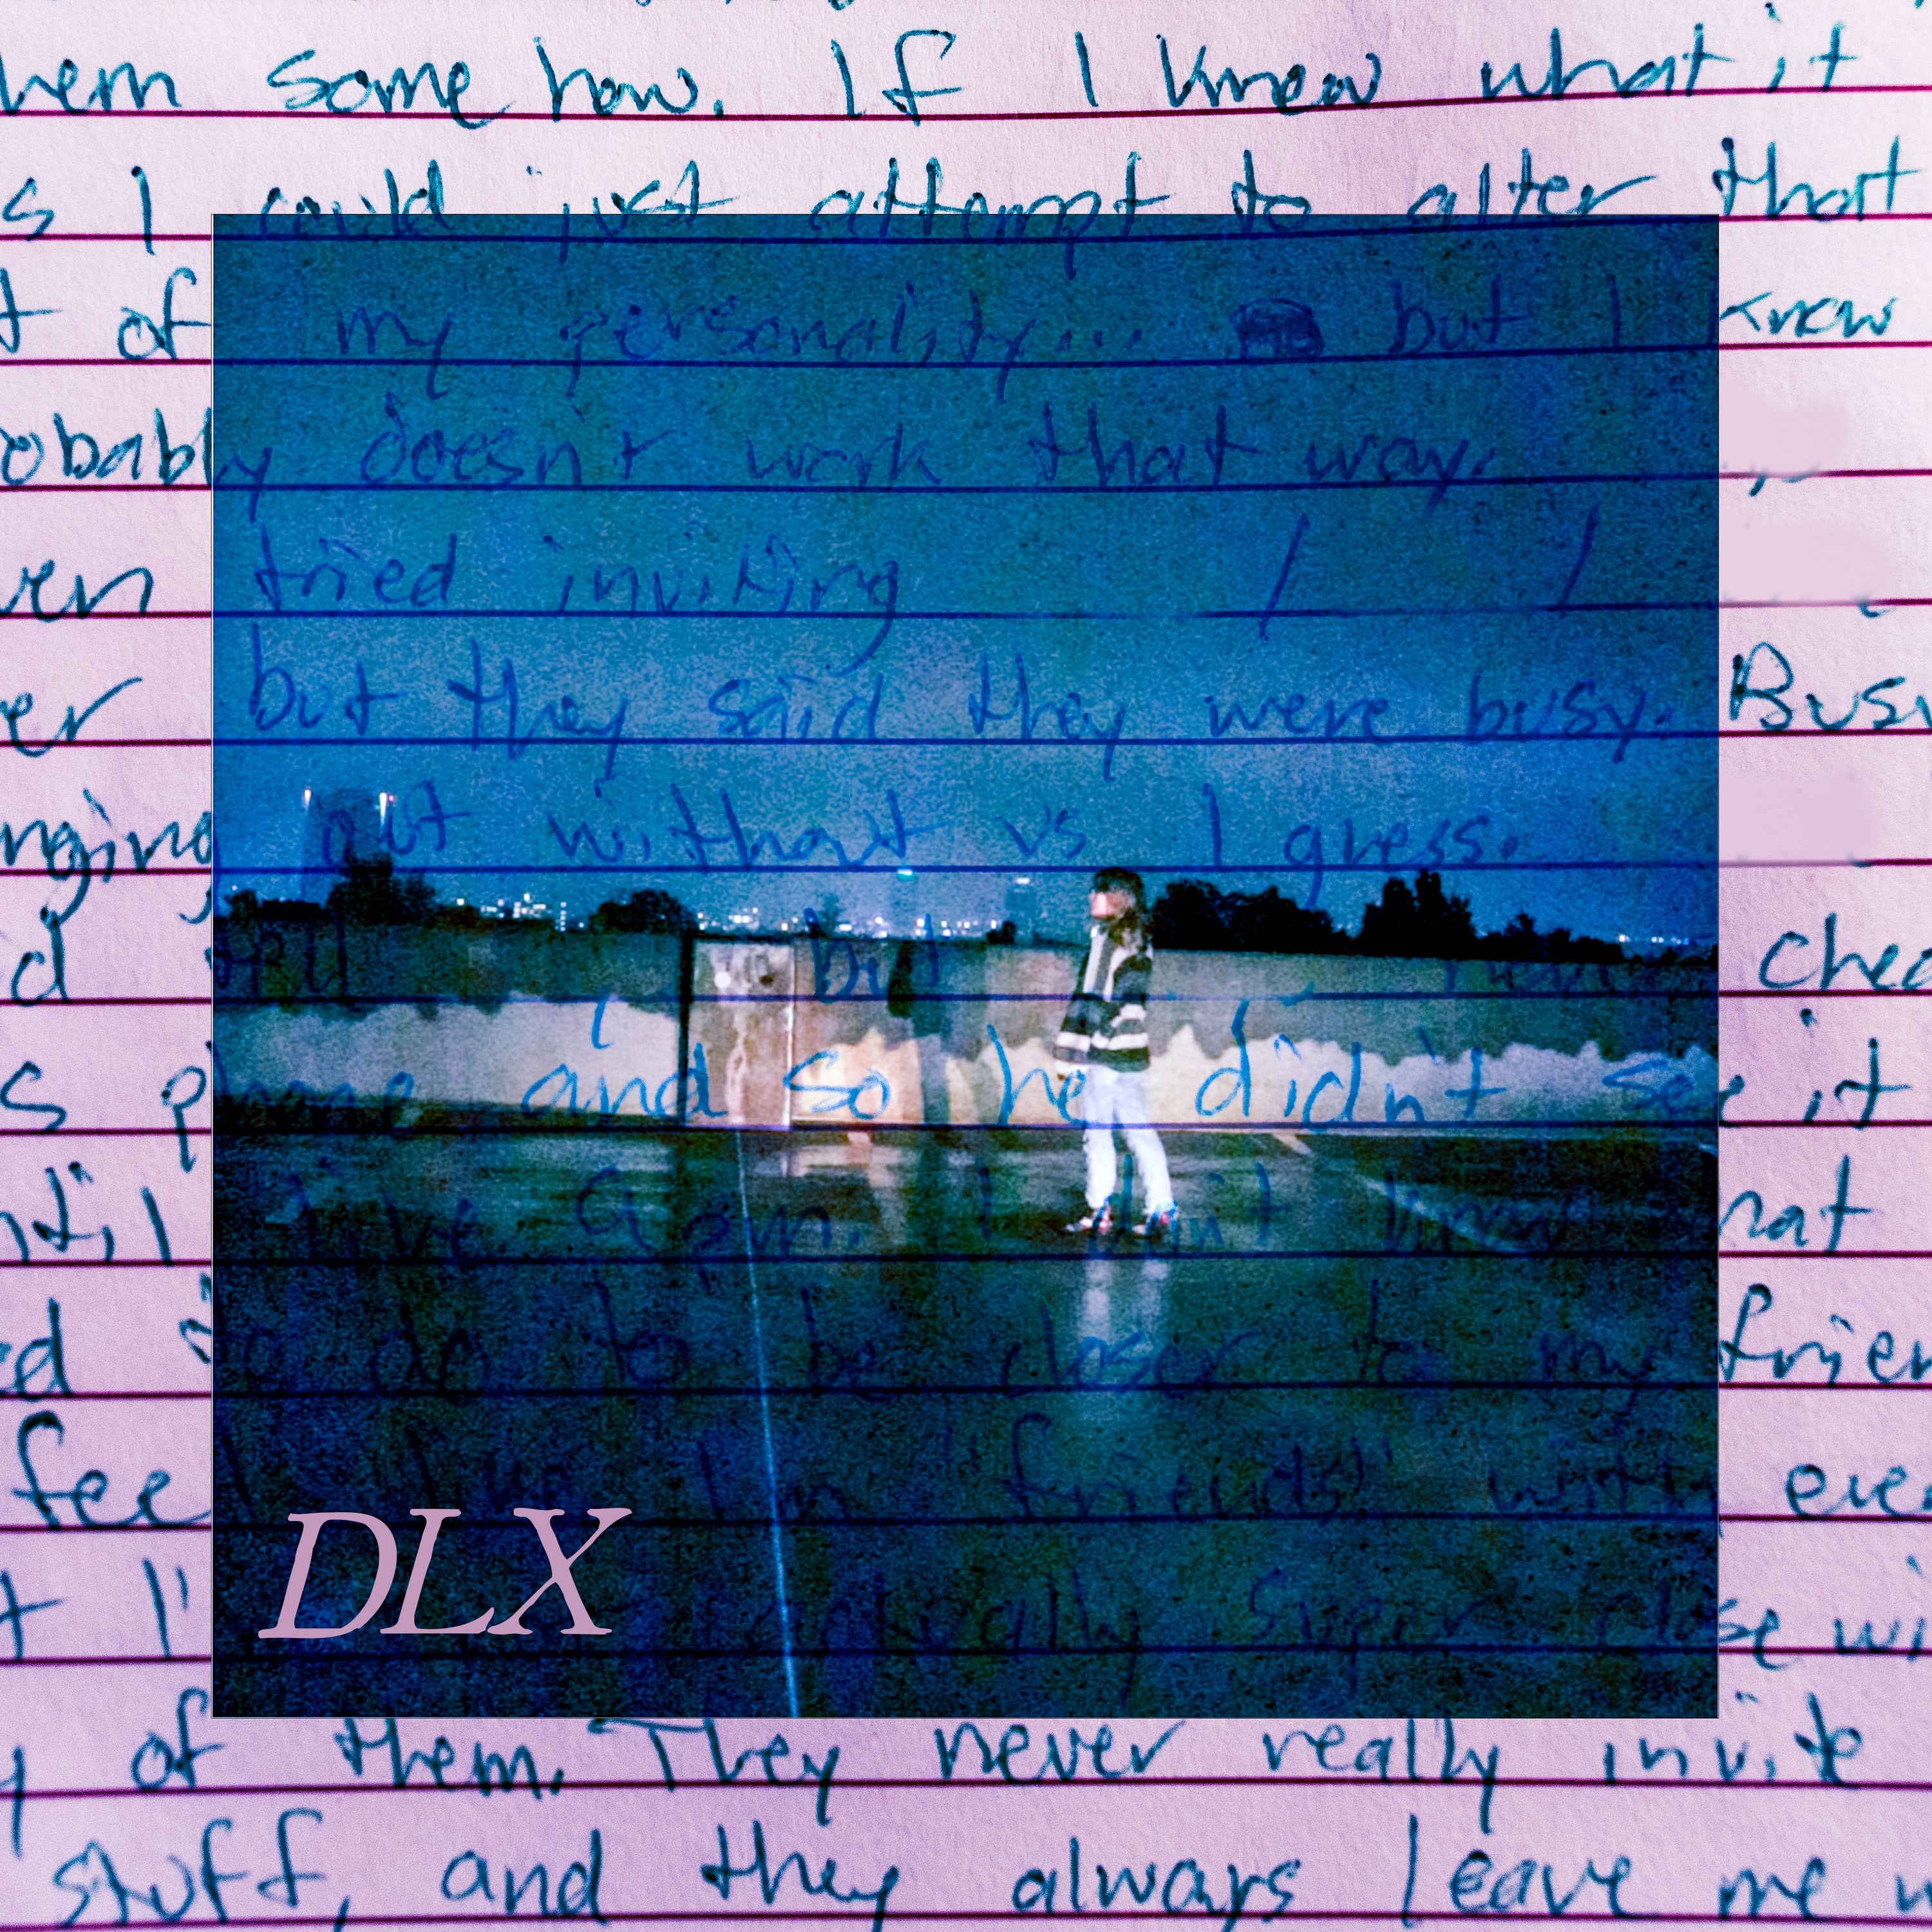 hem some how. If I knew what it
s I could just attempt to alter that
t of my personality... but I know
obably doesn't work that way.
ven tried inviting / /
er but they said they were busy. Busy
nging out without us I guess.
d tell but chec
s phone and so he didn't see it
ntil five A.m. I don't know hat
ed to do to be closer to my frien
feel like I'm "friends" with eve
t I' actually super close wi
y of them. They never really invite
stuff, and they always leave me w
DLX